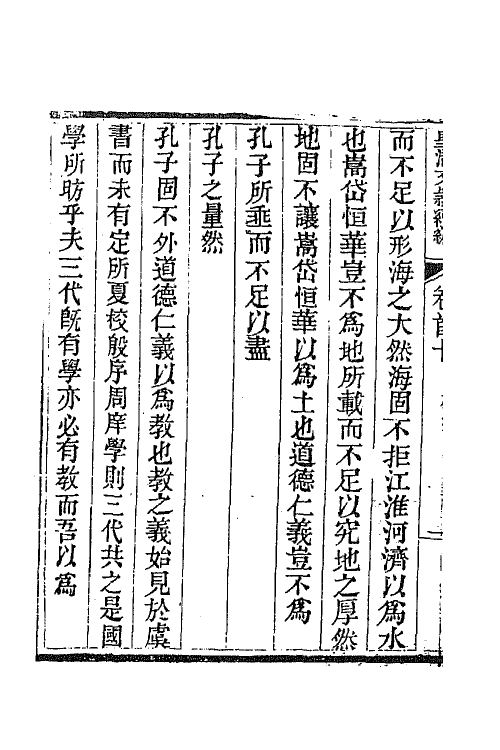 而不足以形海之大然海固不拒江淮河濟以爲水
也嵩岱恒華豈不爲地所載而不足以究地之厚然
地固不讓嵩岱恒華以爲土也道德仁義豈不爲
孔子所垂而不足以盡
孔子之量然
孔子固不外道德仁義以爲敎也敎之義始見於虞
書而未有定所夏校殷序周庠學則三代共之是國
學所昉乎夫三代旣有學亦必有敎而吾以爲